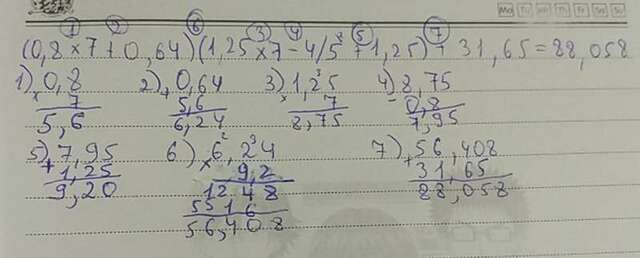 Mo Tu We Th Fr Sa Su
① ② ⑥ ③ ④ ⑤ ⑦
(0,8 × 7 + 0,64)(1,25 × 7 - 4/5 + 1,25) + 31,65 = 88,058
1) 0,8 2) 0,64 3) 1,25 4) 8,75
× 7 + 5,6 × 7 - 0,8
5,6 6,24 8,75 7,95
5) 7,95 6) 6,24 7) 56,408
+ 1,25 × 9,2 + 31,65
9,20 1248 88,058
5516
56,408